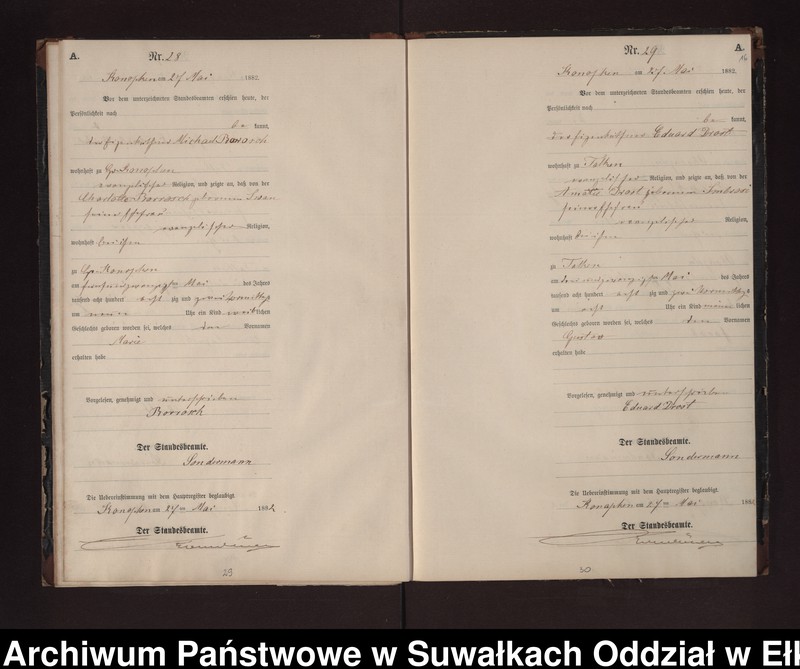 A.
Nr. 28
Konopken am 27 Mai 1882.
Vor dem unterzeichneten Standesbeamten erschien heute, der
Persönlichkeit nach
be kannt,
der Eigenkäthner Michael Borrosch
wohnhaft zu Gr. Konopken
evangelischer Religion, und zeigte an, daß von der
Charlotte Borrosch geborenen
seiner Ehefrau
evangelischer Religion,
wohnhaft bei ihm
zu Gr. Konopken
am Mai des Jahres
tausend acht hundert acht zig und zwei Vormittags
um neun Uhr ein Kind weiblichen
Geschlechts geboren worden sei, welches den Vornamen
Marie
erhalten habe
Vorgelesen, genehmigt und unterschrieben
Borrosch
Der Standesbeamte.
Sondermann
Die Uebereinstimmung mit dem Hauptregister beglaubigt.
Konopken am 27ten Mai 1882
Der Standesbeamte.
29
Nr. 29
A.
16
Konopken am 27. Mai 1882.
Vor dem unterzeichneten Standesbeamten erschien heute, der
Persönlichkeit nach
be kannt,
der Eigenkäthner Eduard Drost
wohnhaft zu Talken
evangelischer Religion, und zeigte an, daß von der
Amalie Drost geborenen
seiner Ehefrau
evangelischer Religion,
wohnhaft bei ihm
zu Talken
am drei und zwanzigsten Mai des Jahres
tausend acht hundert acht zig und zwei Vormittags
um acht Uhr ein Kind männlichen
Geschlechts geboren worden sei, welches den Vornamen
Gustav
erhalten habe
Vorgelesen, genehmigt und unterschrieben
Eduard Drost
Der Standesbeamte.
Sondermann
Die Uebereinstimmung mit dem Hauptregister beglaubigt.
Konopken am 27ten Mai 188
Der Standesbeamte.
30
Archiwum Państwowe w Suwałkach Oddział w Ełk